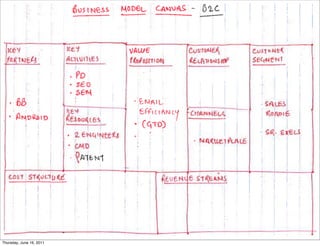 BUSINESS MODEL CANVAS - B2C
KEY
PARTNERS
• BB
• ANDROID
KEY
ACTIVITIES
• PD
• SEO
• SEM
KEY
RESOURCES
• 2 ENGINEERS
• CMO
• PATENT
VALUE
PROPOSITION
• EMAIL
EFFICIENCY
• (GTD)
CUSTOMER
RELATIONSHIP
CHANNELS
• MARKETPLACE
CUSTOMER
SEGMENT
• SALES
ROADIE
• SR. EXECS
COST STRUCTURE
REVENUE STREAMS
Thursday, June 16, 2011